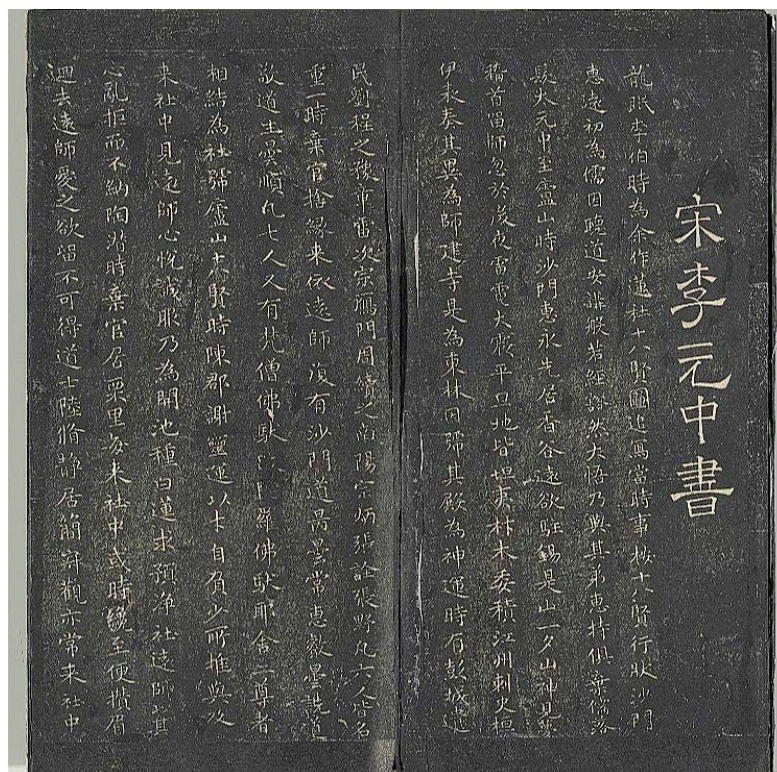 宋李元中書
龍眠李伯時為余作蓮社十八賢圖追寫當時事按十八賢行狀沙門
惠遠初為儒因聽道安講般若經豁然大悟乃與其弟惠持俱棄儒落
髮太元中至廬山時沙門惠永先居香谷遠欲駐錫是山一夕山神見夢
稽首留師忽於後夜雷電大震平旦地皆坦夷材木委積江州刺史桓
伊表奏其異為師建寺是為東林因號其殿為神運時有彭城遺
民劉程之豫章雷次宗鴈門周續之南陽宗炳張詮張野凡六人皆名
重一時棄官捨緣来依遠師復有沙門道昺曇常惠叡曇詵道
敬道生曇順凡七人又有梵僧佛馱 羅佛馱耶舍二尊者
相結為社號廬山十八賢時陳郡謝靈運以才自負少所推與及
来社中見遠師心悅誠服乃為開池種白蓮求預淨社遠師以其
心亂拒而不納陶潛時棄官居栗里每来社中或時纔至便攢眉
迴去遠師愛之欲留不可得道士陸脩静居簡寂觀亦常来社中